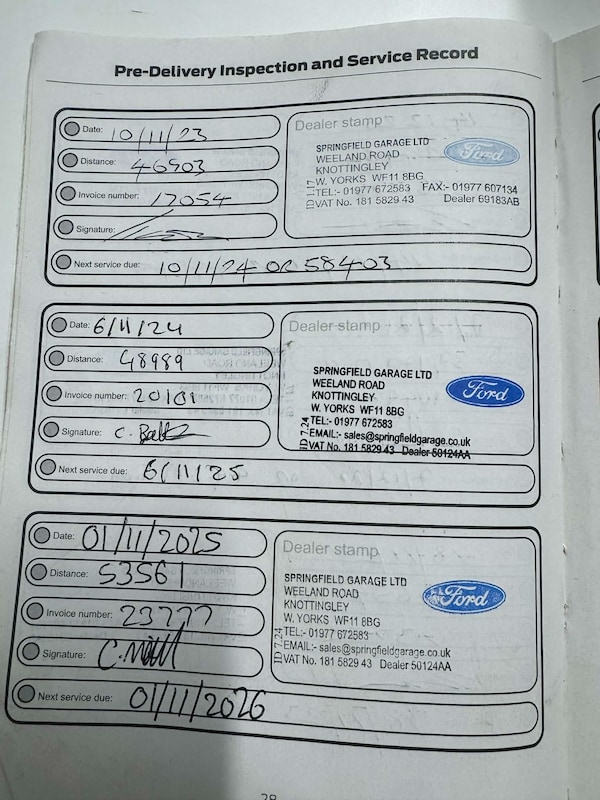 Pre-Delivery Inspection and Service Record
Date: 10/11/23
Distance: 46903
Invoice number: 17054
Signature:
Next service due: 10/11/24 OR 58403
Dealer stamp
SPRINGFIELD GARAGE LTD
WEELAND ROAD
KNOTTINGLEY
W. YORKS WF11 8BG
TEL:- 01977 672583 FAX:- 01977 607134
VAT No. 181 5829 43 Dealer 69183AB
Ford
Date: 6/11/24
Distance: 48989
Invoice number: 20101
Signature: C.
Next service due: 6/11/25
Dealer stamp
SPRINGFIELD GARAGE LTD
WEELAND ROAD
KNOTTINGLEY
W. YORKS WF11 8BG
TEL:- 01977 672583
EMAIL:- sales@springfieldgarage.co.uk
VAT No. 181 5829 43 Dealer 50124AA
ID 7.24
Ford
Date: 01/11/2025
Distance: 53561
Invoice number: 23777
Signature: C.
Next service due: 01/11/2026
Dealer stamp
SPRINGFIELD GARAGE LTD
WEELAND ROAD
KNOTTINGLEY
W. YORKS WF11 8BG
TEL:- 01977 672583
EMAIL:- sales@springfieldgarage.co.uk
VAT No. 181 5829 43 Dealer 50124AA
ID 7.24
Ford